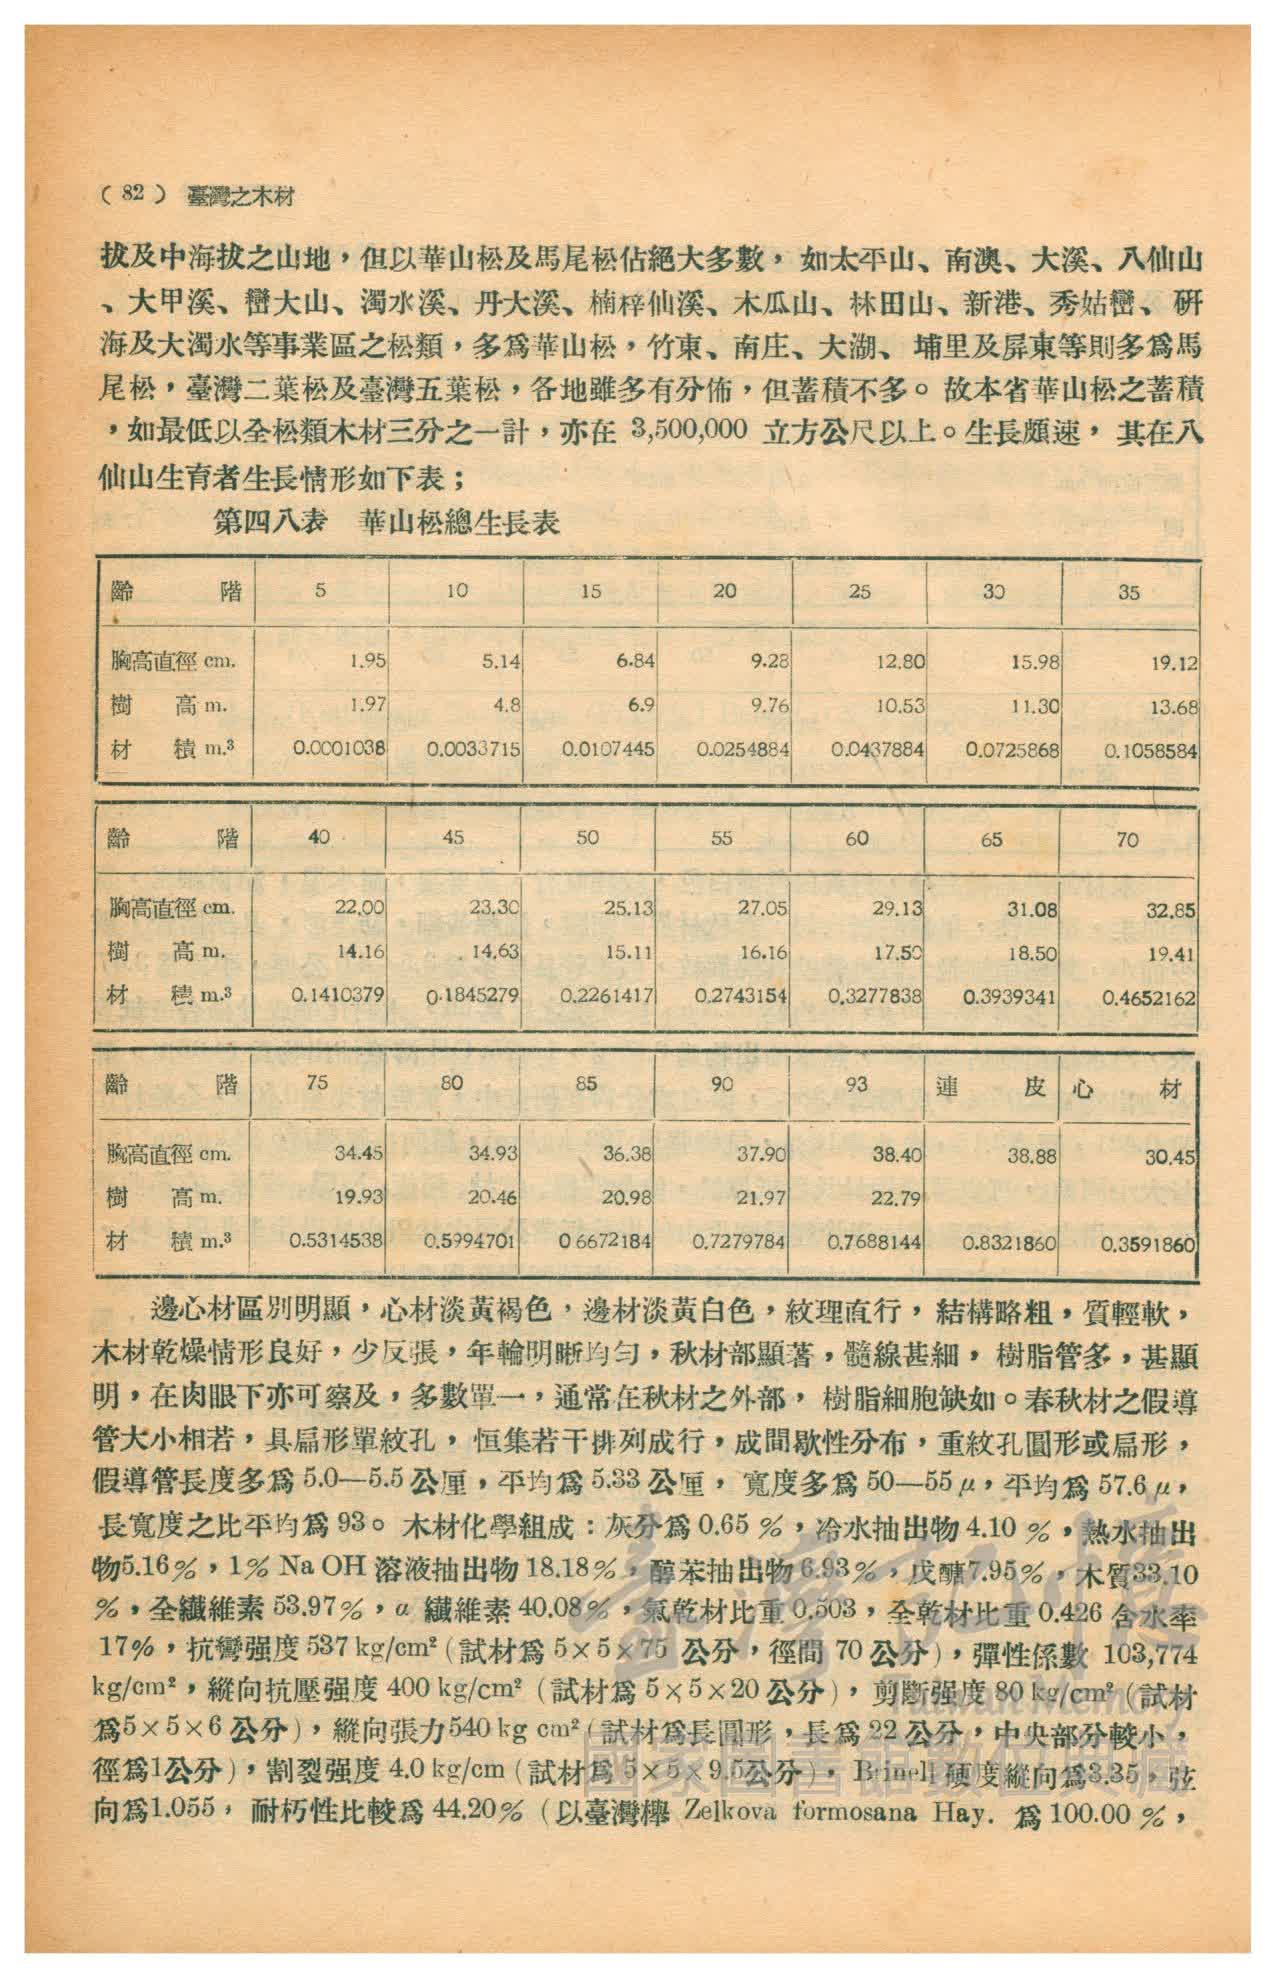 ( 82 ) 臺灣之木材
拔及中海拔之山地，但以華山松及馬尾松佔絕大多數，如太平山、南澳、大溪、八仙山
、大甲溪、巒大山、濁水溪、丹大溪、楠梓仙溪、木瓜山、林田山、新港、秀姑巒、研
海及大濁水等事業區之松類，多爲華山松，竹東、南庄、大湖、埔里及屏東等則多爲馬
尾松，臺灣二葉松及臺灣五葉松，各地雖多有分佈，但蓄積不多。故本省華山松之蓄積
，如最低以全松類木材三分之一計，亦在 3,500,000 立方公尺以上。生長頗速，其在八
仙山生育者生長情形如下表；
第四八表　華山松總生長表
齡階 5 10 15 20 25 30 35
胸高直徑 cm. 1.95 5.14 6.84 9.28 12.80 15.98 19.12
樹高 m. 1.97 4.8 6.9 9.76 10.53 11.30 13.68
材積 m.³ 0.0001038 0.0033715 0.0107445 0.0254884 0.0437884 0.0725868 0.1058584
齡階 40 45 50 55 60 65 70
胸高直徑 cm. 22.00 23.30 25.13 27.05 29.13 31.08 32.85
樹高 m. 14.16 14.63 15.11 16.16 17.50 18.50 19.41
材積 m.³ 0.1410379 0.1845279 0.2261417 0.2743154 0.3277838 0.3939341 0.4652162
齡階 75 80 85 90 93 連皮 心材
胸高直徑 cm. 34.45 34.93 36.38 37.90 38.40 38.88 30.45
樹高 m. 19.93 20.46 20.98 21.97 22.79
材積 m.³ 0.5314538 0.5994701 0 6672184 0.7279784 0.7688144 0.8321860 0.3591860
邊心材區別明顯，心材淡黃褐色，邊材淡黃白色，紋理直行，結構略粗，質輕軟，
木材乾燥情形良好，少反張，年輪明晰均勻，秋材部顯著，髓線甚細，樹脂管多，甚顯
明，在肉眼下亦可察及，多數單一，通常在秋材之外部，樹脂細胞缺如。春秋材之假導
管大小相若，具扁形單紋孔，恒集若干排列成行，成間歇性分布，重紋孔圓形或扁形，
假導管長度多爲 5.0—5.5 公厘，平均爲 5.33 公厘，寬度多爲 50—55 μ，平均爲 57.6 μ，
長寬度之比平均爲 93。木材化學組成：灰分爲 0.65 %，冷水抽出物 4.10 %，熱水抽出
物5.16%，1% Na OH 溶液抽出物 18.18%，醇苯抽出物 6.93%，戊醣7.95%，木質33.10
%，全纖維素 53.97%，α 纖維素 40.08%，氣乾材比重 0.503，全乾材比重 0.426 含水率
17%，抗彎强度 537 kg/cm² (試材爲 5×5×75 公分，徑間 70 公分)，彈性係數 103,774
kg/cm²，縱向抗壓强度 400 kg/cm² (試材爲 5×5×20 公分)，剪斷强度 80 kg/cm² (試材
爲5×5×6 公分)，縱向張力540 kg cm² (試材爲長圓形，長爲 22 公分，中央部分較小，
徑爲1公分)，割裂强度 4.0 kg/cm (試材爲 5×5×9.5公分)，Brinell 硬度縱向爲3.35，弦
向爲1.055，耐朽性比較爲 44.20% (以臺灣櫸 Zelkova formosana Hay. 爲 100.00 %，
臺灣記憶
Taiwan Memory
國家圖書館數位典藏